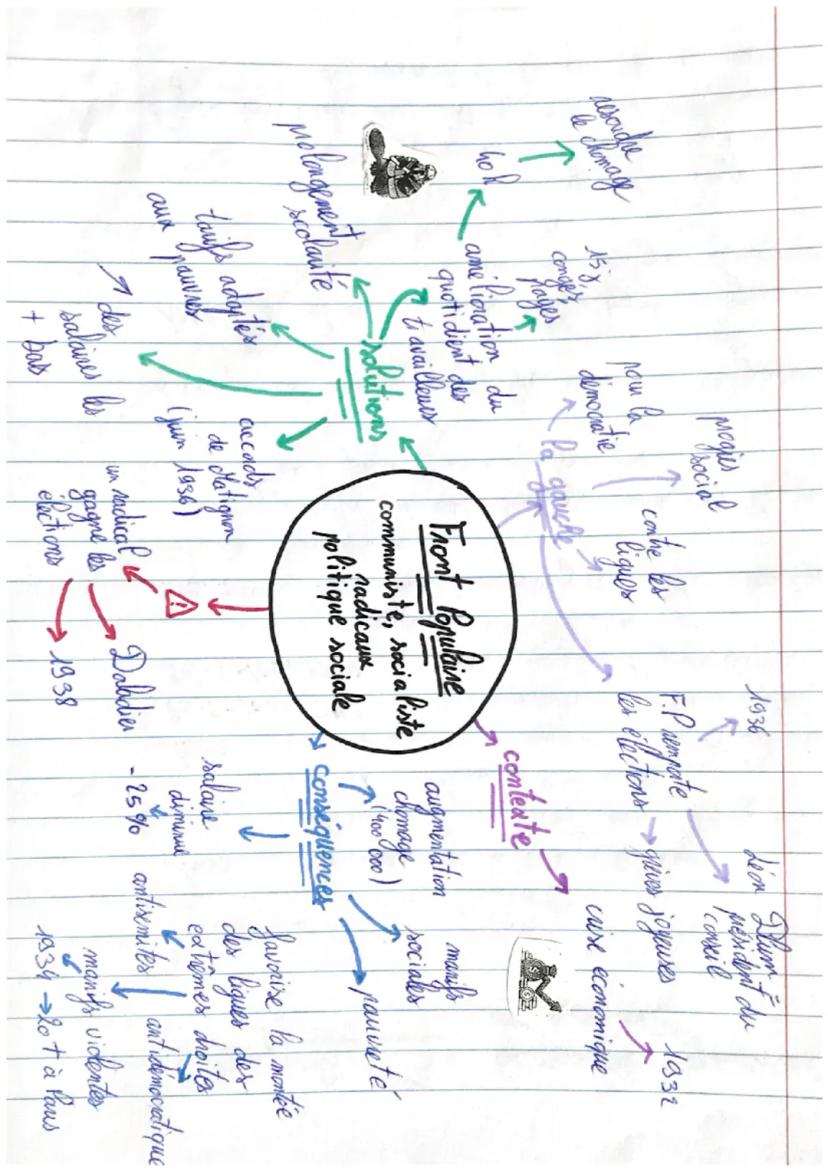 Front Populaire
communiste, socialiste
radicaux
politique sociale
contexte
crise économique
1932
conséquences
augmentation
chomage
(400 000)
manifs
sociales
pauvreté
salaire
diminue
-25%
favorise la montée
des ligues des
extrêmes droites
antisémites
antidémocratique
manifs violentes
1934 → 20 † à Paris
un radical
gagne les
élections
Daladier
1938
solutions
accords
de Matignon
(juin 1936)
↗ des
salaires les
+ bas
tarifs adaptés
aux pauvres
prolongement
scolarité
amélioration du
quotidient des
travailleurs
40 h
resoudre
le chomage
15 j
congés
payés
la gauche
pour la
démocratie
progrès
social
contre les
ligues
F.P remporte
les élections
1936
Léon Blum =
président du
conseil
grèves joyeuses